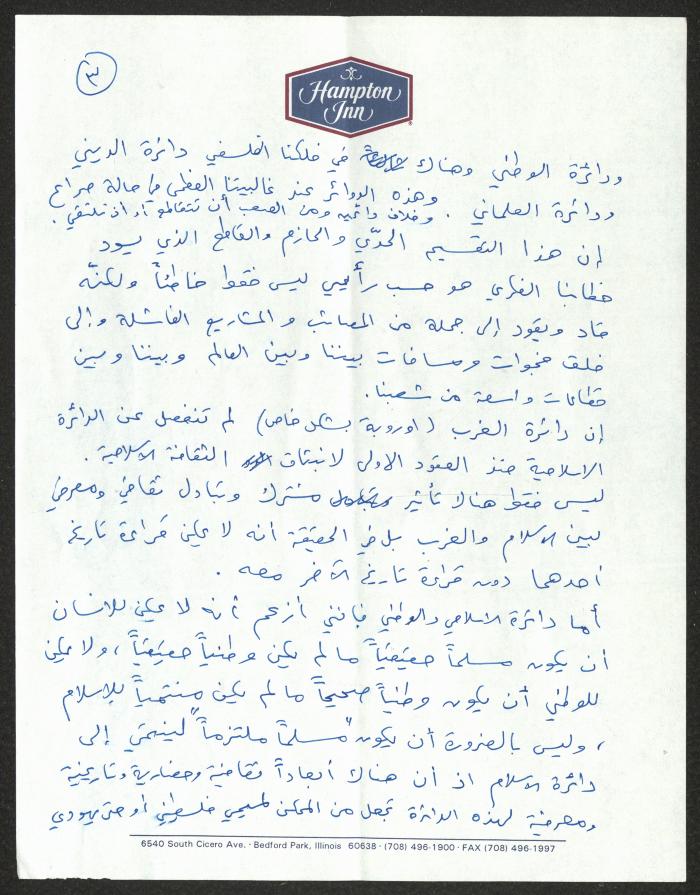 ٣
Hampton
Inn
ودائرة الوطني وهناك في فلكنا الفلسفي دائرة الديني
ودائرة العلماني . وهذه الدوائر عند غالبيتنا العظمى في حالة صراع
وخلاف دائميه ومن الصعب أن تتقاطع أو أن تلتقي .
إن هذا التقسيم الحدّي والحازم والقاطع الذي يسود
خطابنا الفكري هو حسب رأيي ليس فقط خاطئاً ولكنّه
قاد ويقود إلى جملة من المصائب والمشاريع الفاشلة وإلى
خلق فجوات ومسافات بيننا وبين العالم وبيننا وبين
قطاعات واسعة من شعبنا .
إن دائرة الغرب (اوروبة بشكل خاص) لم تنفصل عن الدائرة
الاسلامية منذ العقود الاولى لانبثاق الثقافة الاسلامية .
ليس فقط هناك تأثير مشترك وتبادل ثقافي ومعرفي
بين الاسلام والغرب بل في الحقيقة أنه لا يمكن قراءة تاريخ
احدهما دون قراءة تاريخ الآخر معه .
أما دائرة الاسلامي والوطني فإنني أزعم أنه لا يمكن للانسان
أن يكون مسلماً حقيقياً ما لم يكن وطنياً حقيقياً ، ولا يمكن
للوطني أن يكون وطنياً صحيحاً ما لم يكن منتمياً للإسلام
، وليس بالضرورة أن يكون "مسلماً ملتزماً" لينتمي إلى
دائرة الاسلام اذ أن هناك أبعاداً ثقافية وحضارية وتاريخية
ومعرفية لهذه الدائرة تجعل من الممكن لمسيحي فلسطيني أو حتى يهودي
6540 South Cicero Ave. · Bedford Park, Illinois 60638 · (708) 496-1900 · FAX (708) 496-1997